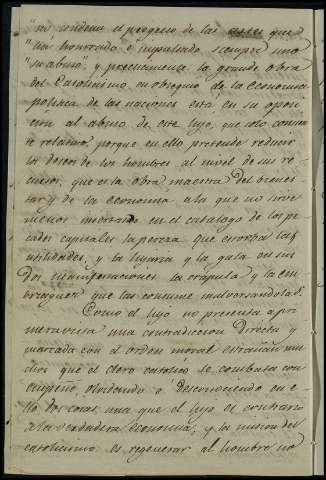 "no condena el progreso de las artes que
"ha honrado e impulsado siempre sino
"su abuso" y precisamente la grande obra
del Catolicismo, en obsequio de la economia
politica de las naciones está en su oposi-
cion al abuso de este lujo, que solo consien-
te relativo, porque en ello pretende reducir
los deseos de los hombres al nivel de sus re-
cursos, que es la obra maestra del bienes-
tar y de la economia a la que no sirve
menos inscribiendo en el catálogo de los pe-
cados capitales la pereza que estorba las
utilidades, y la lujuria y la gula en sus
dos manifestaciones la crápula y la em-
briaguez que las consume malversandolas.
Como el lujo no presenta a pri-
mera vista una contradiccion directa y
marcada con el orden moral estrañan mu-
chos que el clero catolico le combata con
empeño, olvidando o desconociendo en e-
llo dos cosas, una que el lujo es contrario
a la verdadera economia, y la mision del
catolicismo es regenerar al hombre no